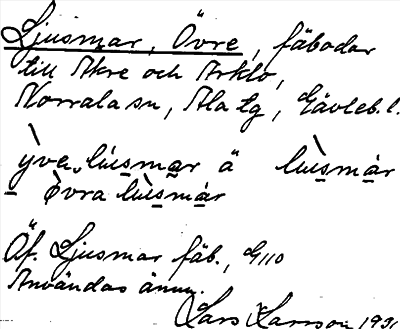 Ljusmar, Övre, fäbodar
till Åkre och Arklo,
Norrala sn, Ala tg, Gävleb. l.
yva lúusmar ä lúusmår
Övra lúusmår
Äf. Ljusmar fäb., G110
Användas ännu.
Lars Larsson 1931